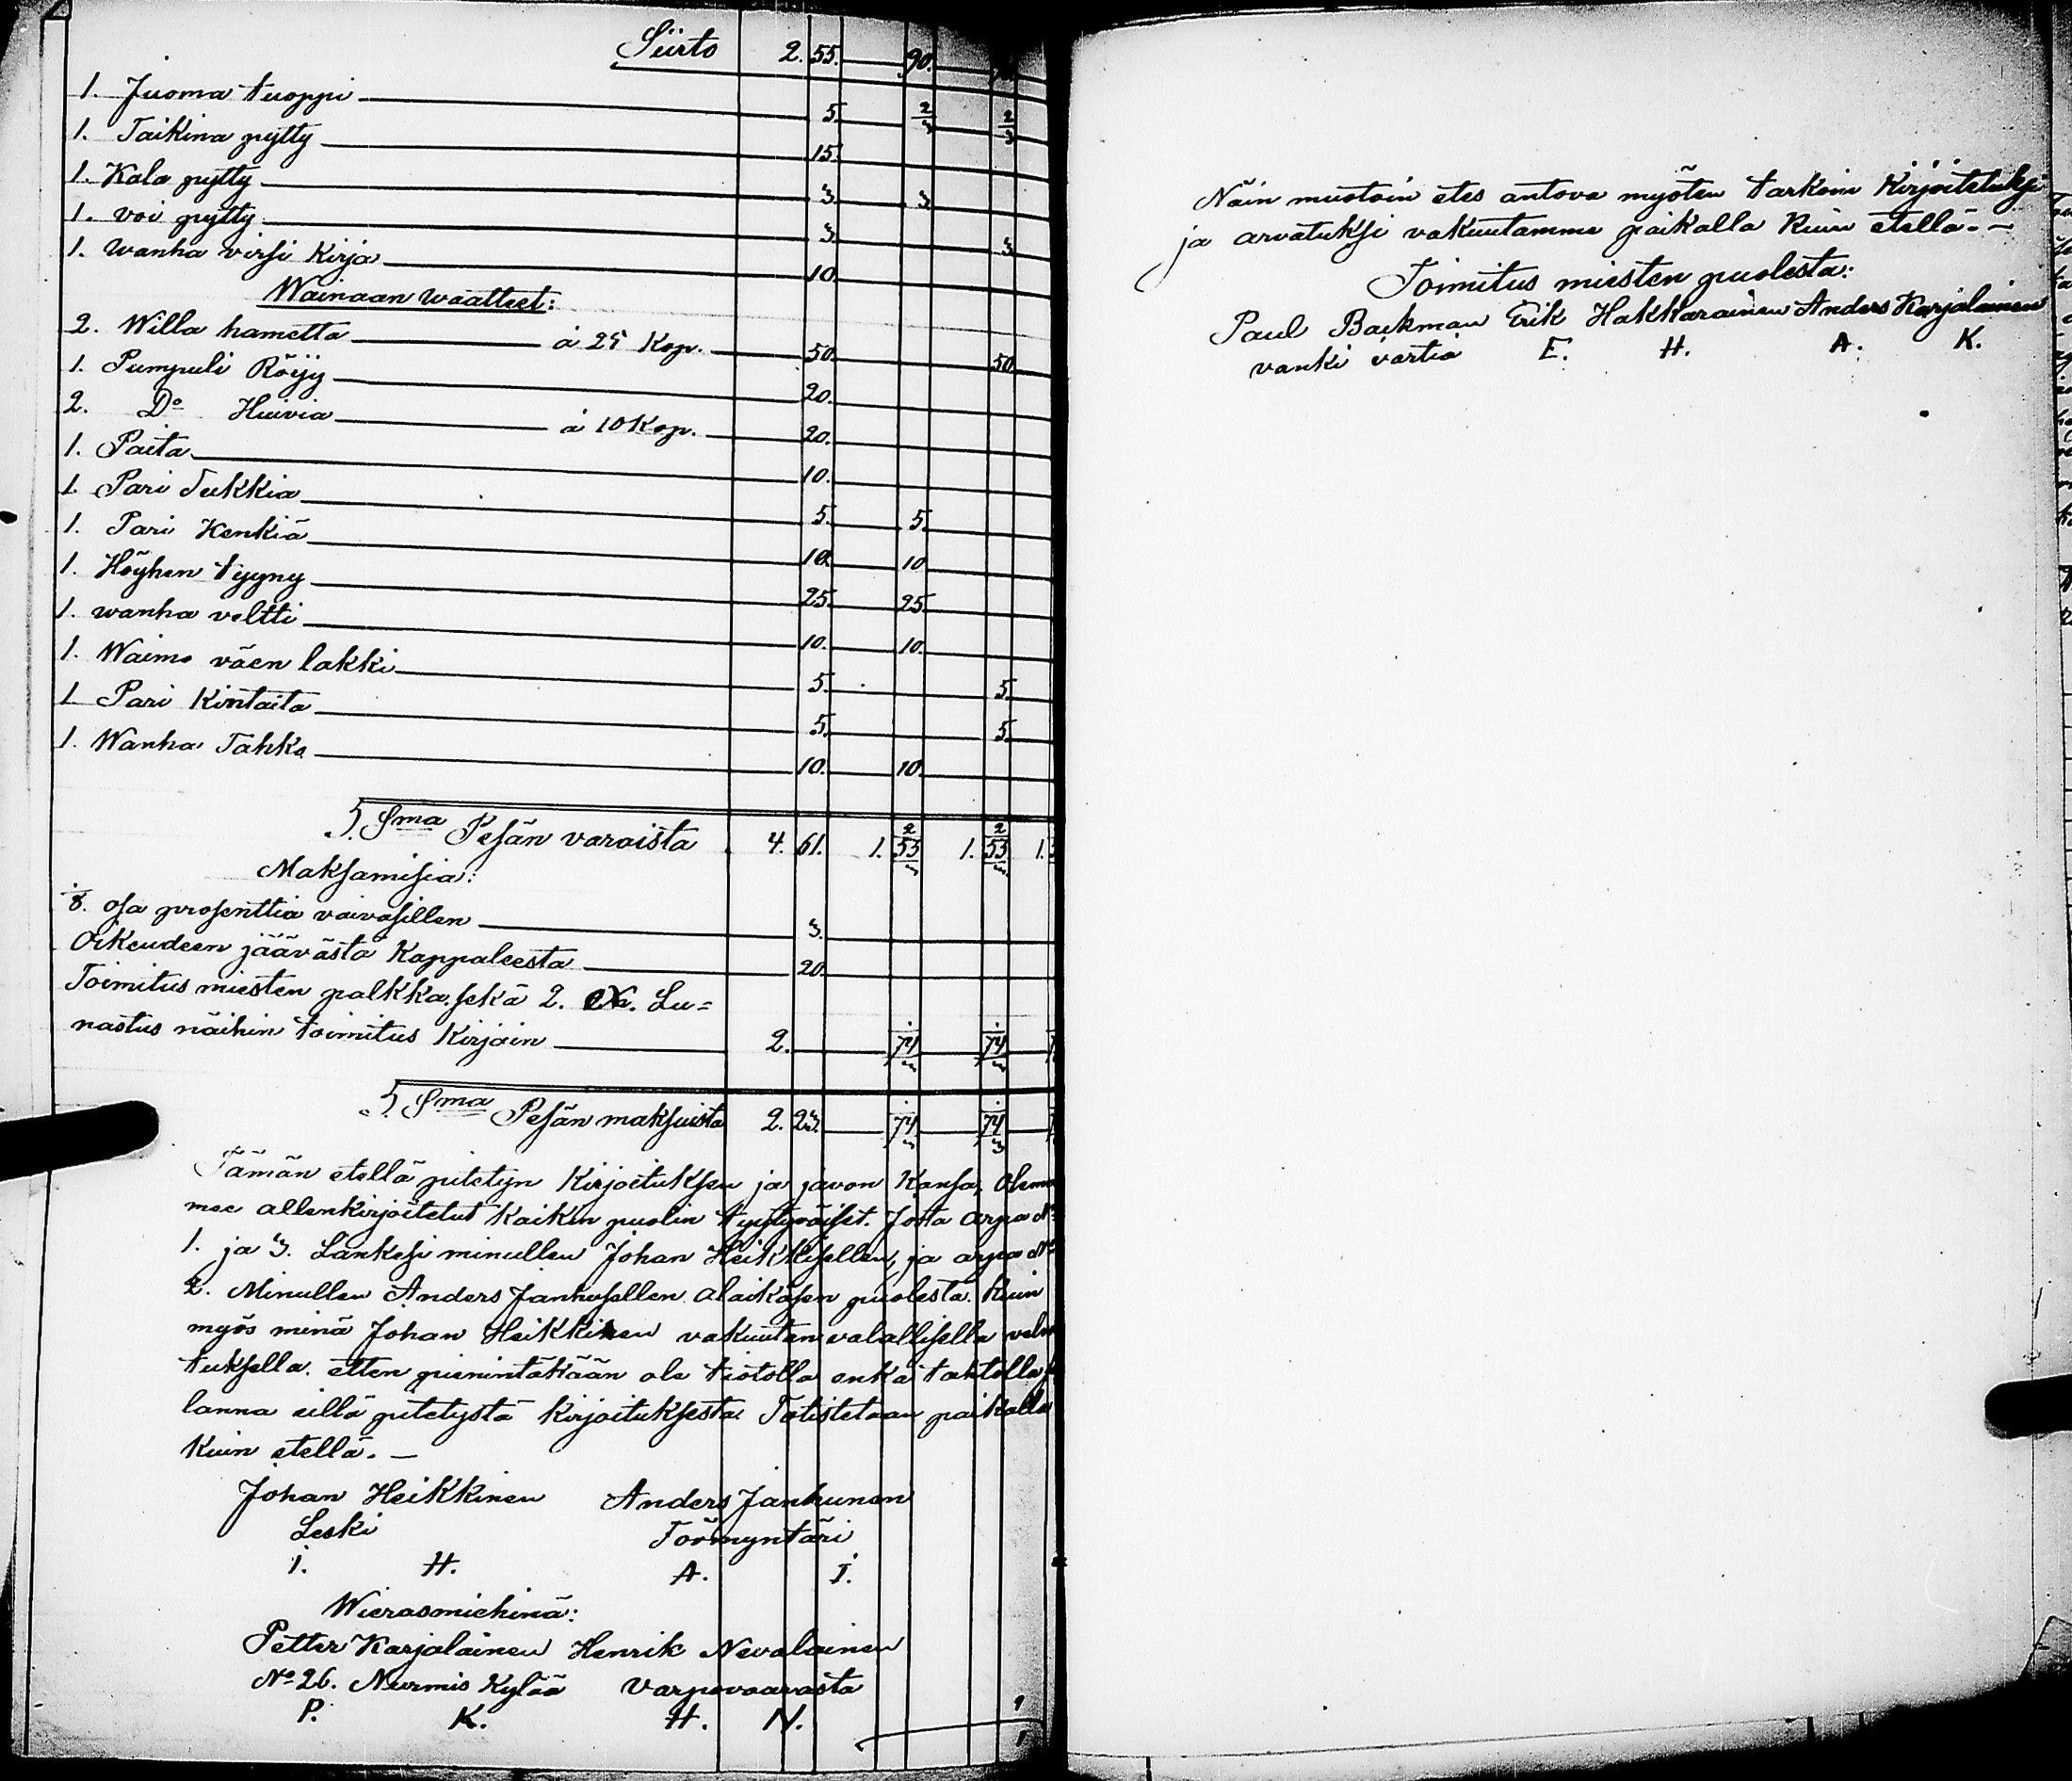 Siirto 2. 55. 90.
1. Juoma tuoppi 5. 2/3 2/3
1. Taikina pytty 15.
1. Kala pytty 3. 3.
1. voi pytty 3. 3
1. wanha virsi Kirja 10.
Wainaan waatteet:
2. Willa hametta à 25 Kop. 50. 50
1. Pumpuli Röijy 20.
2. Do Huivia à 10 Kop. 20.
1. Paita 10.
1. Pari Sukkia 5. 5.
1. Pari Kenkiä 10. 10
1. Höyhen tyyny 25. 25.
1. wanha veltti 10. 10.
1. Waimo väen lakki 5. 5.
1. Pari Kintaita 5. 5.
1. Wanha Tahko 10. 10.
Sma Pesän varoista 4. 61. 1. 53 2/3 1. 53 2/3 1.
Maksamisia:
1/8. osa prosenttia vaivasillen 3.
Oikeudeen jäävästä Kappaleesta 20.
Toimitus miesten palkka sekä 2. Lu=
nastus näihin toimitus Kirjoin 2. 74 1/3 74 1/3
Sma Pesän maksuista 2. 23. 74 1/3 74 1/3
Tämän etellä pitetyn Kirjoituksen ja javon Kansa, Olemm
mee allenkirjoitetut Kaikin puolin tyytyväiset. Josta arpa No
1. ja 3. Lankesi minullen Johan Heikkisellen, ja arpa No
2. Minullen Anders Janhusellen alaikäsen puolesta. Kuin
myös minä Johan Heikkinen vakuutan valallisella velvo
tuksella. etten pienintäkään ole tiotolla enkä tahtolla
lanna eillä pitetystä Kirjoituksesta Totistetaan paikalla
Kuin etellä. —
Johan Heikkinen Anders Janhunen
Leski Töömyntäri
I. H. A. J.
Wierasmiehinä:
Petter Karjalainen Henrik Nevalainen
No 26. Nurmis Kylää Varpovaarasta
P. K. H. N.
Näin muotoin etes antova myöten tarkoin Kirjoitetuksi
ja arvatuksi vakuutamme paikalla Kuin etellä. —
Toimitus miesten puolesta:
Paul Backman Erik Hakkarainen Anders Karjalainen
vanki vartia E. H. A. K.